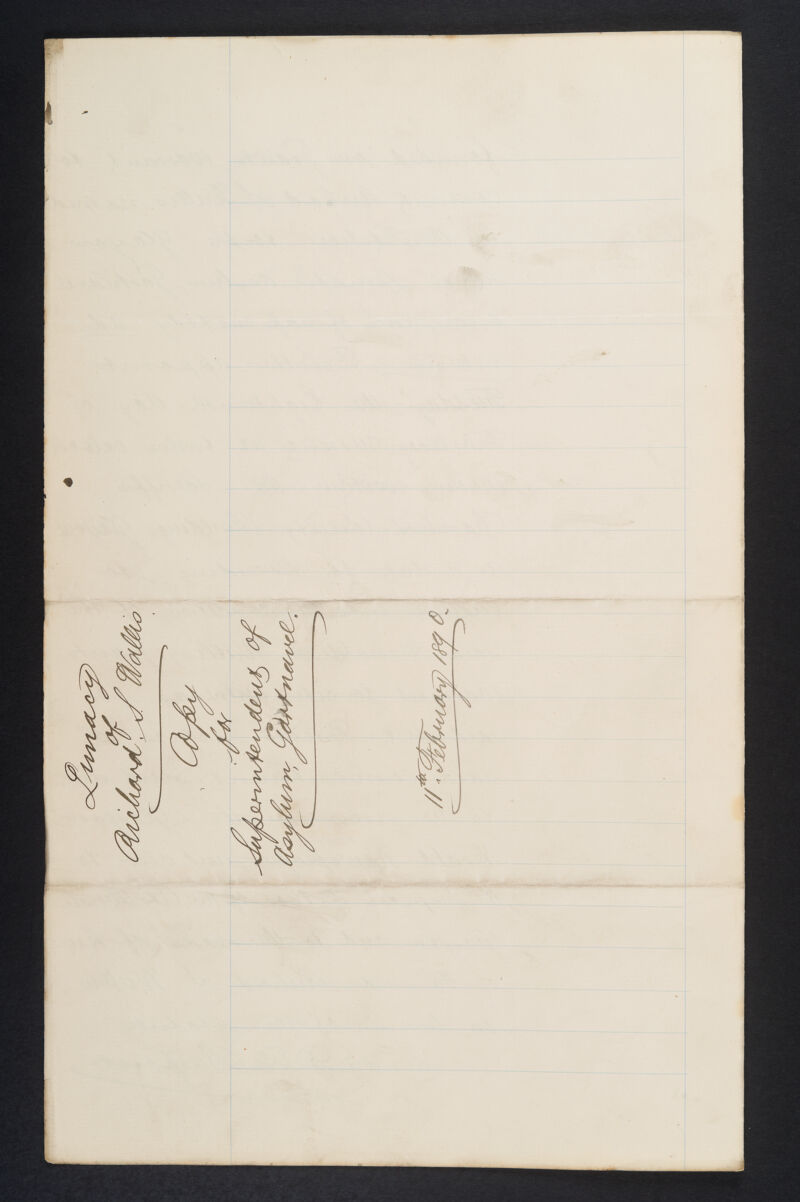 Lunacy
of
Richard. S. Wallis.
Copy
for
Superintendent of
Asylum, Gartnavel.
11th. February 1890.